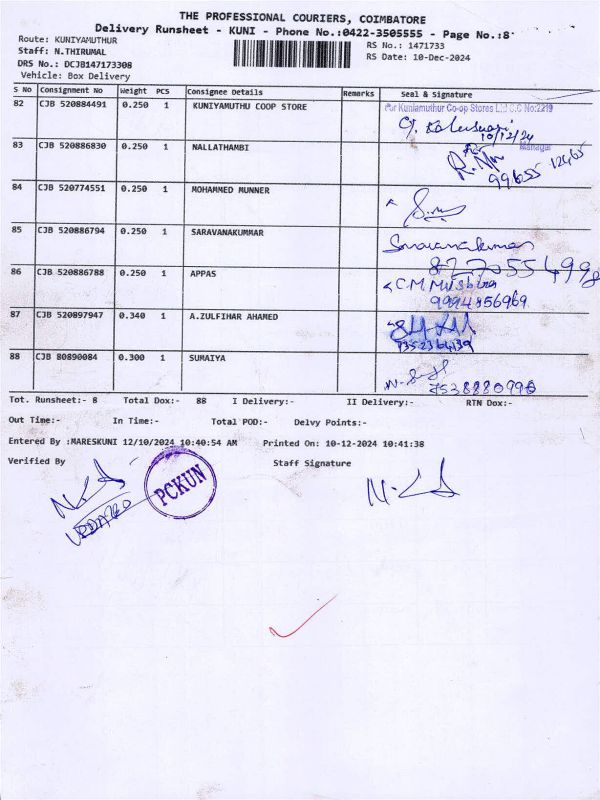 THE PROFESSIONAL COURIERS, COIMBATORE
Delivery Runsheet - KUNI - Phone No.:0422-3505555 - Page No.:8
Route: KUNIYAMUTHUR
RS No.: 1471733
Staff: N.THIRUMAL
RS Date: 10-Dec-2024
DRS No.: DCJB147173308
Vehicle: Box Delivery
S No Consignment No Weight PCS Consignee Details Remarks Seal & Signature
82 CJB 520884491 0.250 1 KUNIYAMUTHU COOP STORE
For Kuniamuthur Co-op Stores Ltd C.C No:2219
10/12/24
Manager
83 CJB 520886830 0.250 1 NALLATHAMBI
84 CJB 520774551 0.250 1 MOHAMMED MUNNER
85 CJB 520886794 0.250 1 SARAVANAKUMMAR
Saravanakumar
86 CJB 520886788 0.250 1 APPAS
C.M.
9994856969
87 CJB 520897947 0.340 1 A.ZULFIHAR AHAMED
88 CJB 80890084 0.300 1 SUMAIYA
Tot. Runsheet:- 8 Total Dox:- 88 I Delivery:- II Delivery:- RTN Dox:-
Out Time:- In Time:- Total POD:- Delvy Points:-
Entered By :MARESKUNI 12/10/2024 10:40:54 AM Printed On: 10-12-2024 10:41:38
Verified By Staff Signature
PCKUN
UPDATED